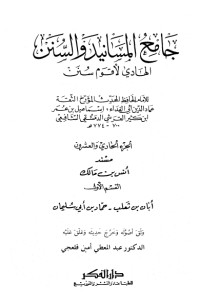 جامع المسانيد والسنن
الهادي لأقوم سنن
للإمام الحافظ المحدث المؤرخ الثقة
عماد الدين أبي الفداء إسماعيل بن عمر
ابن كثير القرشي الدمشقي الشافعي
٧٠٠ - ٧٧٤ هـ
الجزء الحادي والعشرون
مسند
أنس بن مالك
القسم الأول
أبان بن تغلب - حماد بن أبي سليمان
وثق أصوله وخرج حديثه وعلق عليه
الدكتور عبد المعطي أمين قلعجي
دار الفكر
للطباعة والنشر والتوزيع